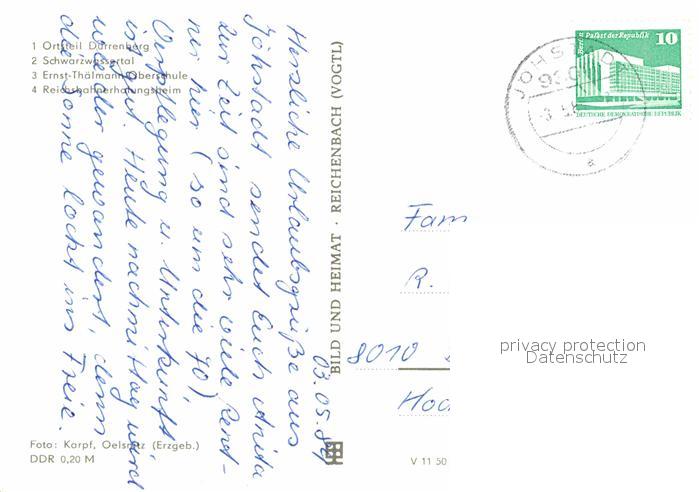 1 Ortsteil Dürrenberg
2 Schwarzwassertal
3 Ernst-Thälmann-Oberschule
4 Reichsbahnerholungsheim
Herzliche Urlaubsgrüße aus
Jöhstadt sendet Euch Anita
Zur Zeit sind sehr viele Rent-
ner hier (so um die 70)
Verpflegung u. Unterkunft
ist gut. Heute nachmittag wird
wieder gewandert, denn
die Sonne lockt ins Freie.
03.05.89
Foto: Karpf, Oelsnitz (Erzgeb.)
DDR 0,20 M
BILD UND HEIMAT · REICHENBACH (VOGTL)
V 11 50
Berlin Palast der Republik
10
DEUTSCHE DEMOKRATISCHE REPUBLIK
JÖHSTADT
Fam
R.
8010
privacy protection
Datenschutz